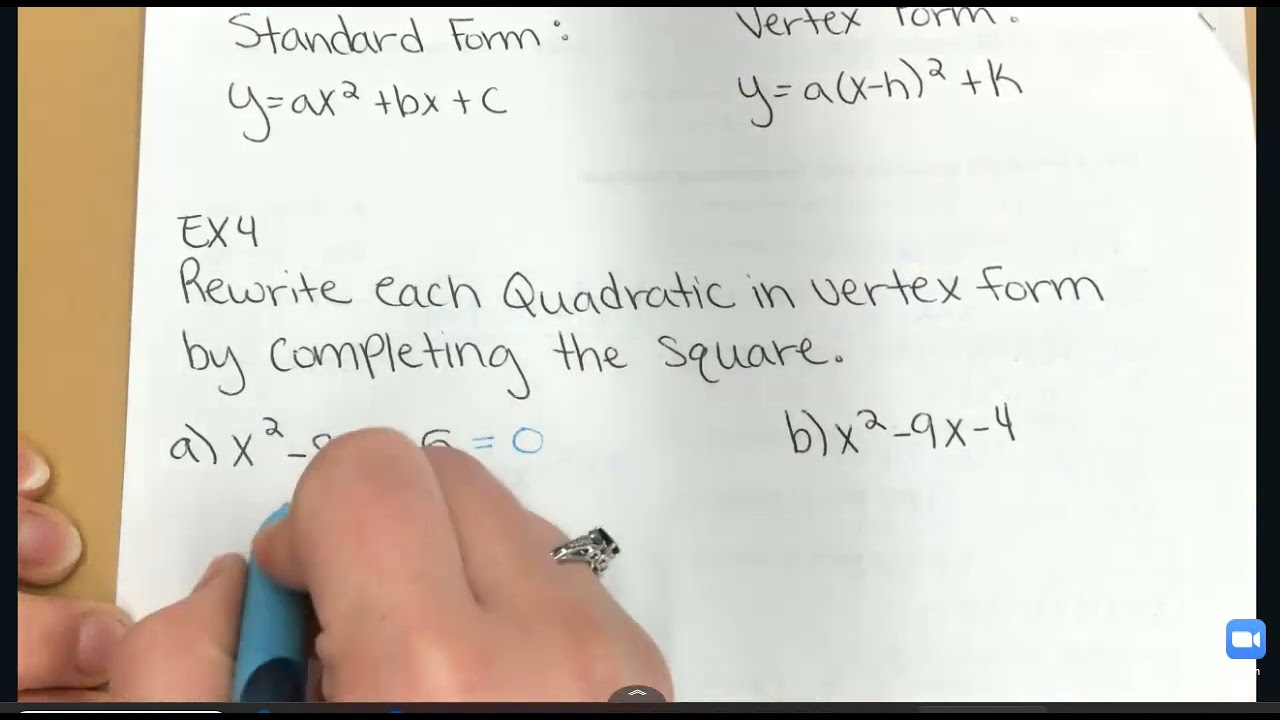 Standard Form:
Vertex Form:
y=ax² +bx+c
y=a(x-h)² +k
EX4
Rewrite each Quadratic in vertex form
by completing the square.
a) x² - = 0
b) x² -9x-4